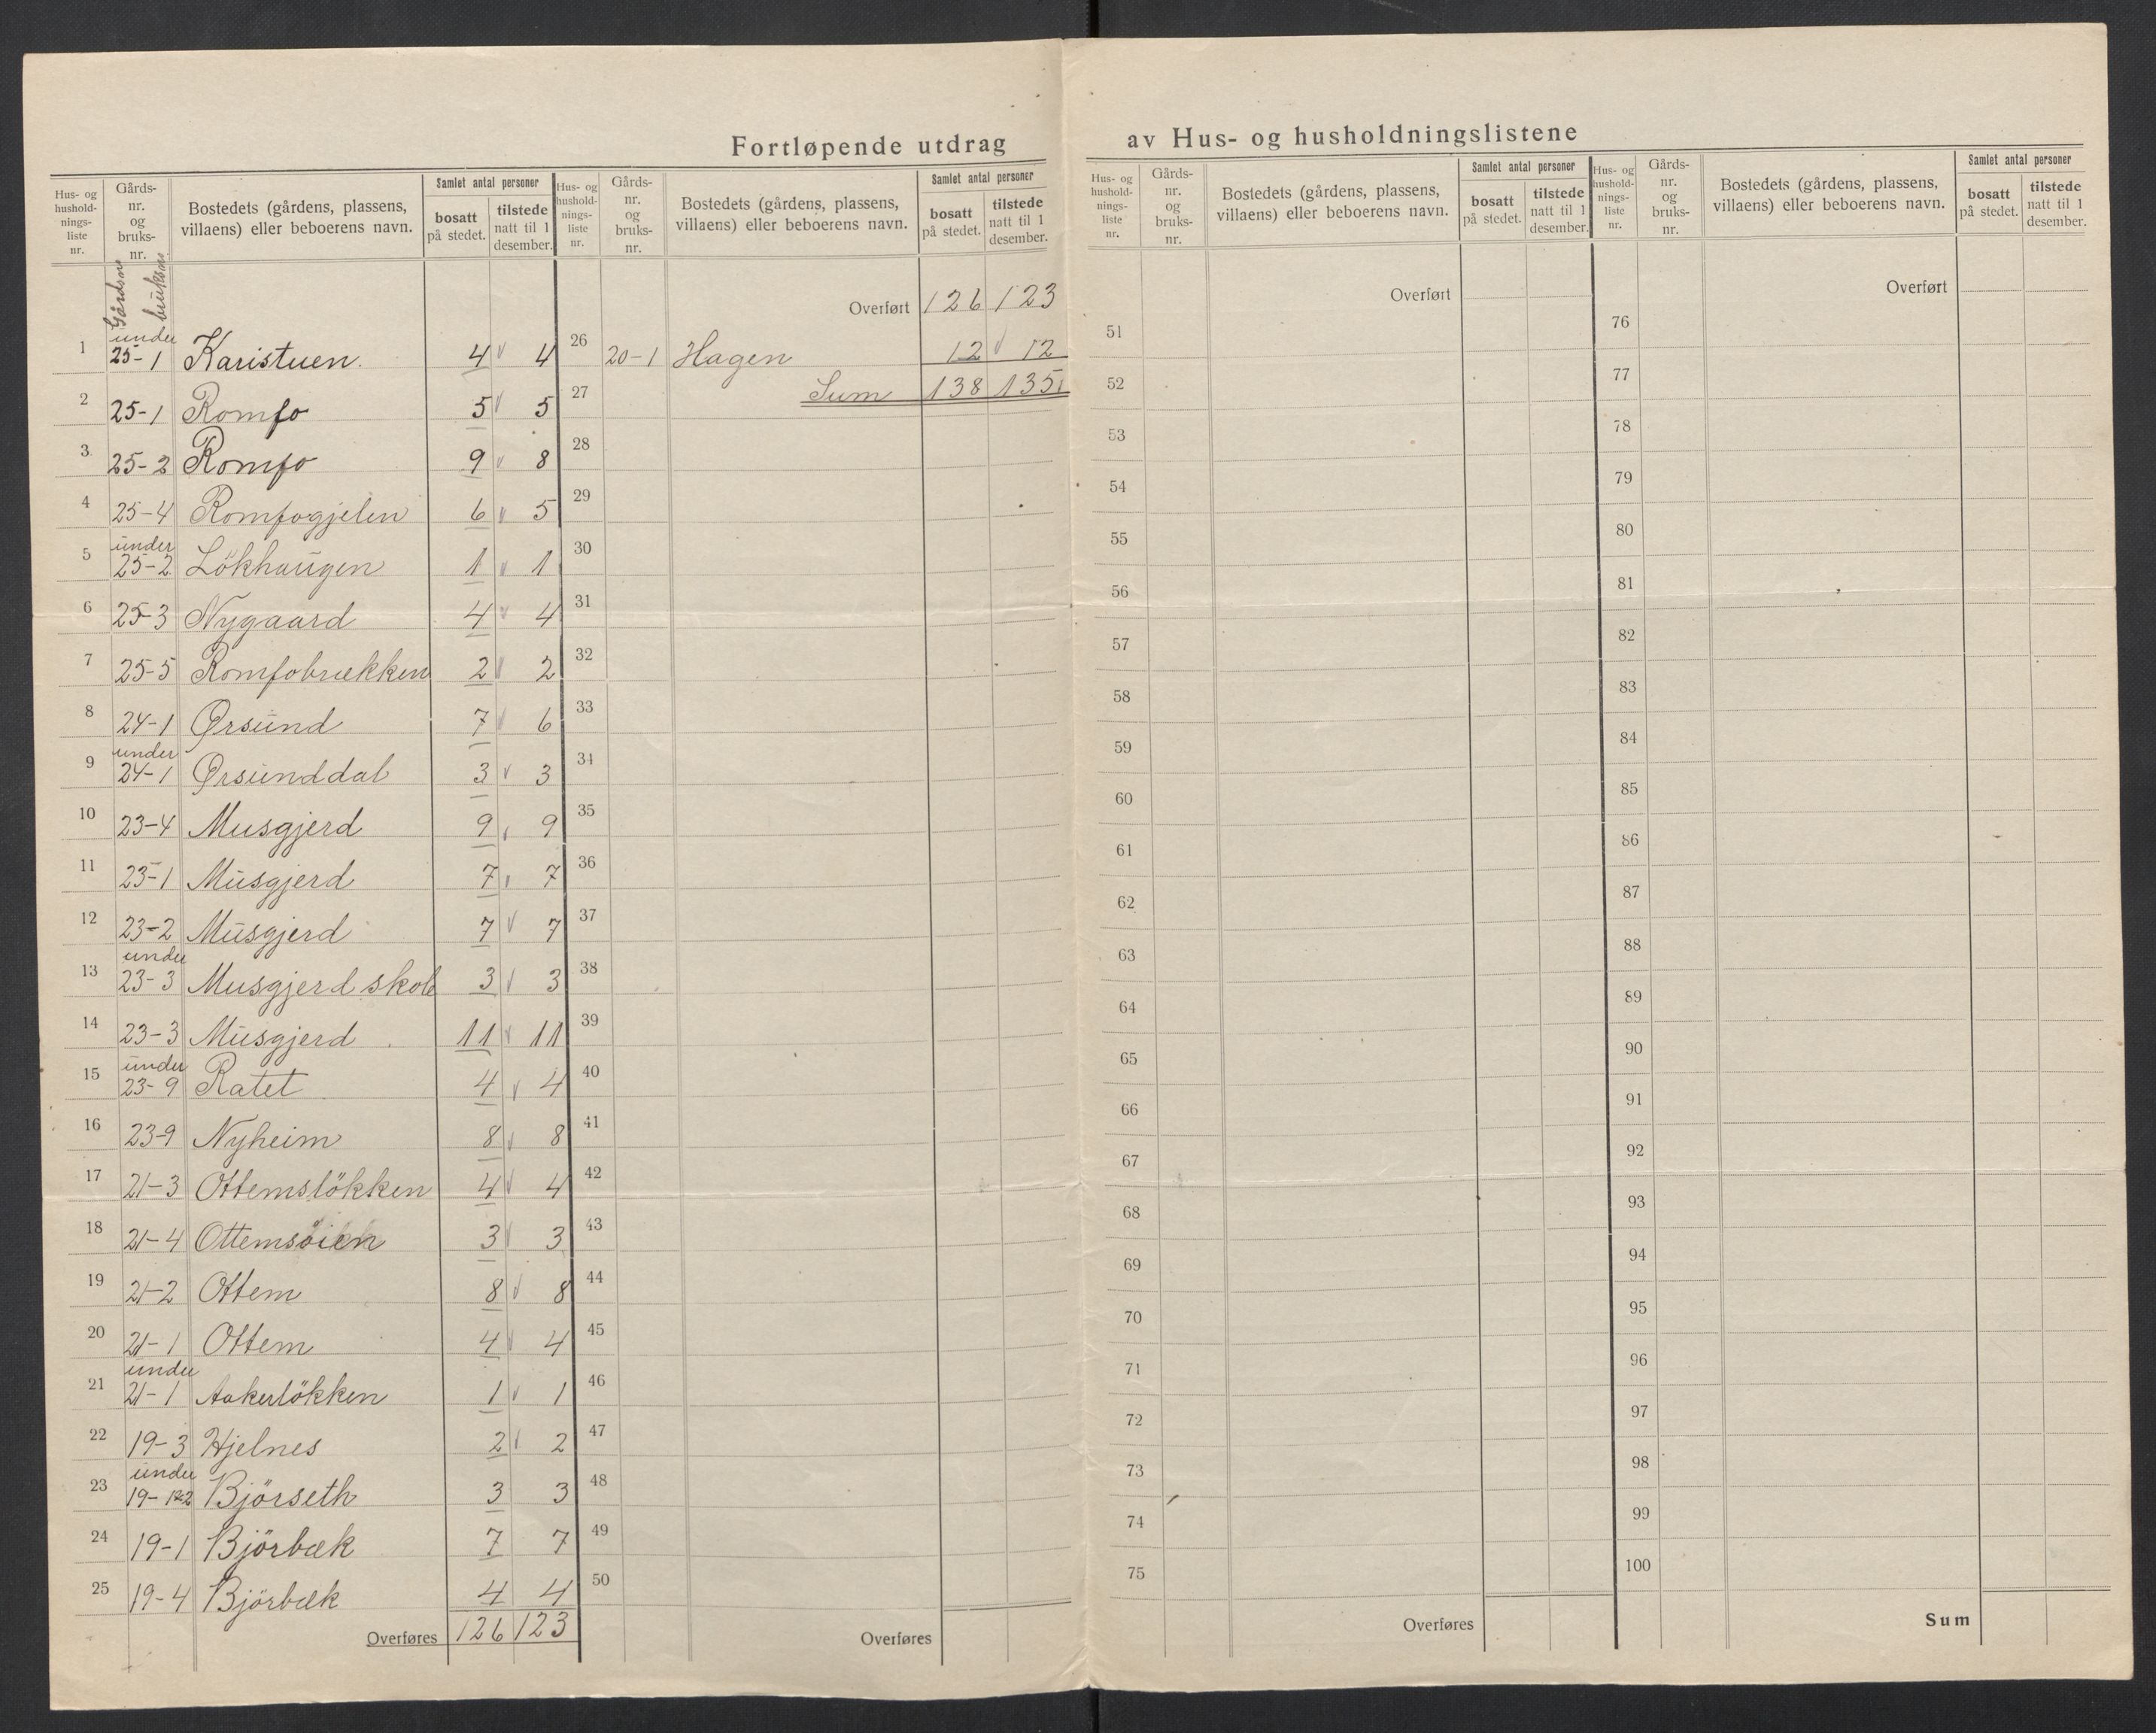 Fortløpende utdrag av Hus- og husholdningslistene
Hus- og husholdnings- liste nr. Gårds- nr. og bruks- nr. Bostedets (gårdens, plassens, villaens) eller beboerens navn. Samlet antal personer bosatt på stedet. tilstede natt til 1 desember.
Gårdsnr bruksnr
1 under 25-1 Karistuen. 4 4
2 25-1 Romfo 5 5
3 25-2 Romfo 9 8
4 25-4 Romfogjelen 6 5
5 under 25-2 Lökhaugen 1 1
6 25-3 Nygaard 4 4
7 25-5 Romfobrækken 2 2
8 24-1 Ørsund 7 6
9 under 24-1 Ørsunddal 3 3
10 23-4 Musgjerd 9 9
11 23-1 Musgjerd 7 7
12 23-2 Musgjerd 7 7
13 under 23-3 Musgjerd skole 3 3
14 23-3 Musgjerd 11 11
15 under 23-9 Ratet 4 4
16 23-9 Nyheim 8 8
17 21-3 Ottemslökken 4 4
18 21-4 Ottemsöien 3 3
19 21-2 Ottem 8 8
20 21-1 Ottem 4 4
21 under 21-1 Aakerlökken 1 1
22 19-3 Hjelnes 2 2
23 under 19-1&2 Björseth 3 3
24 19-1 Björbæk 7 7
25 19-4 Björbæk 4 4
Overføres 126 123
Hus- og husholdnings- liste nr. Gårds- nr. og bruks- nr. Bostedets (gårdens, plassens, villaens) eller beboerens navn. Samlet antal personer bosatt på stedet. tilstede natt til 1 desember.
Overført 126 123
26 20-1 Hagen 12 12
27 Sum 138 135
28
29
30
31
32
33
34
35
36
37
38
39
40
41
42
43
44
45
46
47
48
49
50
Overføres
Hus- og hushold- nings- liste nr. Gårds- nr. og bruks- nr. Bostedets (gårdens, plassens, villaens) eller beboerens navn. Samlet antal personer bosatt på stedet. tilstede natt til 1 desember.
Overført
51
52
53
54
55
56
57
58
59
60
61
62
63
64
65
66
67
68
69
70
71
72
73
74
75
Overføres
Hus- og hushold- nings- liste nr. Gårds- nr. og bruks- nr. Bostedets (gårdens, plassens, villaens) eller beboerens navn. Samlet antal personer bosatt på stedet. tilstede natt til 1 desember.
Overført
76
77
78
79
80
81
82
83
84
85
86
87
88
89
90
91
92
93
94
95
96
97
98
99
100
Sum